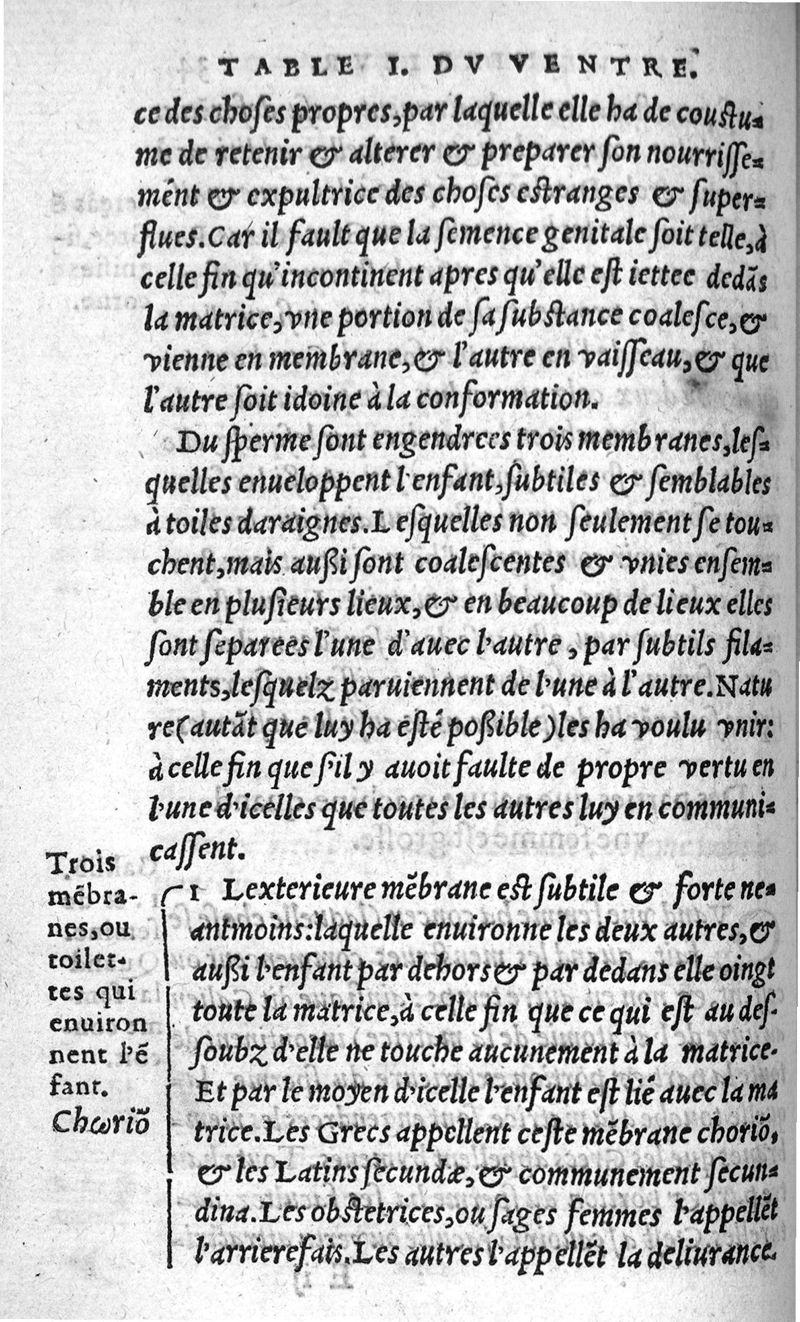 TABLE I. DV VENTRE.
ce des choſes propres, par laquelle elle ha de couſtu-
me de retenir & alterer & preparer ſon nourriſſe-
mẽnt & expultrice des choſes eſtranges & ſuper-
flues. Car il fault que la ſemence genitale ſoit telle, à
celle fin qu'incontinent apres qu'elle eſt iettee dedãs
la matrice, vne portion de ſa ſubſtance coaleſce, &
vienne en membrane, & l'autre en vaiſſeau, & que
l'autre ſoit idoine à la conformation.
Du ſperme ſont engendrees trois membranes, leſ-
quelles enueloppent l'enfant, ſubtiles & ſemblables
à toiles daraignes. Leſquelles non ſeulement ſe tou-
chent, mais außi ſont coaleſcentes & vnies enſem-
ble en pluſieurs lieux, & en beaucoup de lieux elles
ſont ſeparees l'une d'auec l'autre, par ſubtils fila-
ments, leſquelz paruiennent de l'une à l'autre. Natu
re (autãt que luy ha eſté poßible) les ha voulu vnir:
à celle fin que ſ'il y auoit faulte de propre vertu en
l'une d'icelles que toutes les autres luy en communi-
caſſent.
Trois
mẽbra-
nes, ou
toilet-
tes qui
enuiron
nent l'ẽ
fant.
Chωriõ
1 Lexterieure mẽbrane eſt ſubtile & forte ne-
antmoins: laquelle enuironne les deux autres, &
außi l'enfant par dehors & par dedans elle oingt
toute la matrice, à celle fin que ce qui eſt au deſ-
ſoubz d'elle ne touche aucunement à la matrice.
Et par le moyen d'icelle l'enfant eſt lié auec la ma
trice. Les Grecs appellent ceſte mẽbrane choriõ,
& les Latins ſecundæ, & communement ſecun-
dina. Les obſtetrices, ou ſages femmes l'appellẽt
l'arrierefais. Les autres l'appellẽt la deliurance.